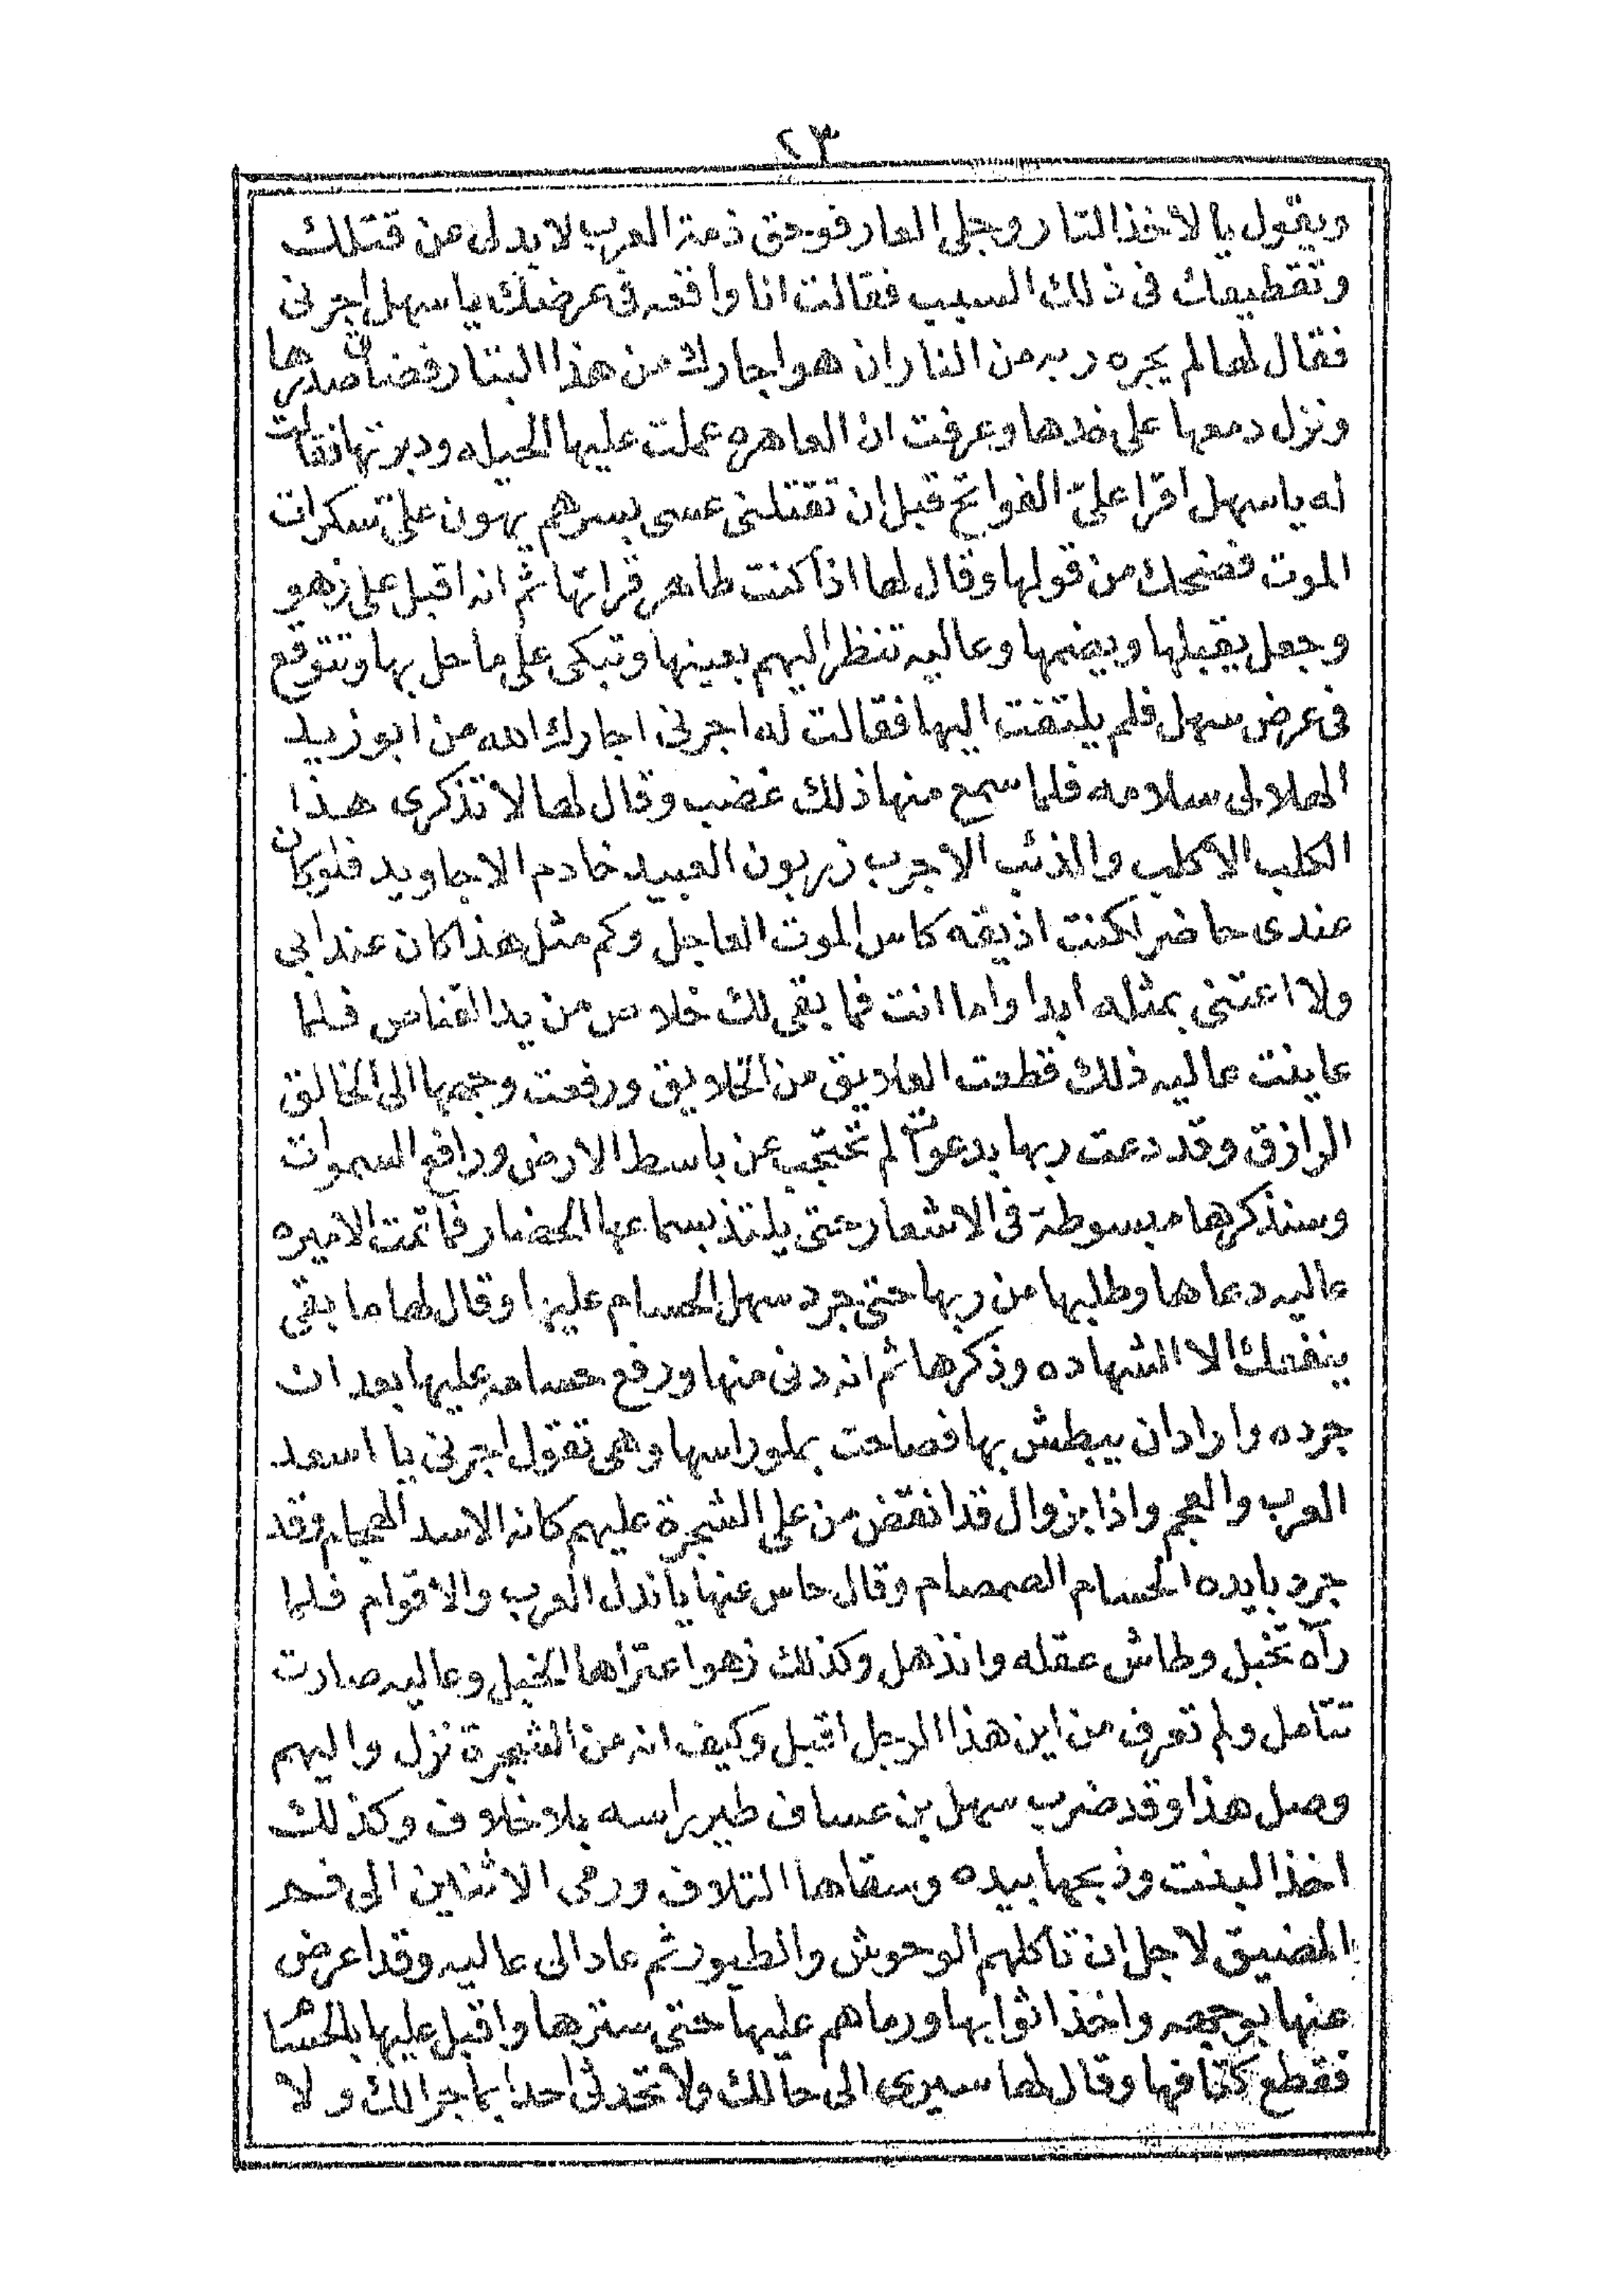 ٢٣
ويقول يا لاخذ التار وجلى العار فوحق ذمة العرب لا بد لى من قتلك
وتقطيعك فى ذلك السبب فقالت انا واقعه فى عرضك يا سهل اجرنى
فقال لها لم يجره ربه من النار ان هو اجارك من هذا البتار فضاق صدرها
ونزل دمعها على خدها وعرفت ان العاهره عملت عليها الحيله ودبرتها فقالت
له يا سهل اقرا علىّ الفواتح قبل ان تقتلنى عسى بسرهم يهون علىّ سكرات
الموت فضحك من قولها وقال لها اذا كنت طاهر قراتها ثم انه اقبل على زهو
وجعل يقبلها ويضمها وعاليه تنظر اليهم بعينها وتبكى على ما حل بها وتتوقع
فى عرض سهل فلم يلتفت اليها فقالت له اجرنى اجارك الله من ابو زيد
الهلالى سلامه فلما سمع منها ذلك غضب وقال لها لا تذكرى هذا
الكلب الاكلب والذئب الاجرب زربون العبيد خادم الاجاويد فلو كان
عندى حاضر لكنت اذيقه كاس الموت العاجل وكم مثل هذا كان عند ابى
ولا اعتنى بمثله ابدا واما انت فما بقى لك خلاص من يد القناص فلما
عاينت عاليه ذلك قطعت العلايق من الخلايق ورفعت وجهها الى الخالق
الرازق وقد دعت ربها بدعوات لم تحتجب عن باسط الارض ورافع السموات
وسنذكرها مبسوطة فى الاشعار حتى يلتذ بسماعها الحضار فما تمت الاميره
عاليه دعاها وطلبها من ربها حتى جرد سهل الحسام عليها وقال لها ما بقى
ينفعك الا الشهاده وذكرها ثم انه دنى منها ورفع حسامه عليها بعد ان
جرده وارادان يبطش بها فصاحت بملو راسها وهى تقول اجرنى يا اسعد
العرب والعجم واذا بزوال قد انقض من على الشجرة عليهم كانه الاسد الهجام وقد
جرد بايده الحسام الصمصام وقال حاس عنها يا ندل العرب والاقوام فلما
رآه تخبل وطاش عقله وانذهل وكذلك زهو اعتراها الخبل وعاليه صارت
تتامل ولم تعرف من اين هذا الرجل اقبل وكيف انه من الشجرة نزل واليهم
وصل هذا وقد ضرب سهل بن عساف طير راسه بلا خلاف وكذلك
اخذ البنت وذبحها بيده وسقاها التلاف ورمى الاثنين الى فحر
المضيق لاجل ان تاكلهم الوحوش والطيور ثم عاد الى عاليه وقد اعرض
عنها بوجهه واخذ اثوابها ورماهم عليها حتى سترها واقبل عليها بالحسام
فقطع كتافها وقال لها سيرى الى حالك ولا تحدثى احدا بما جرالك ولا